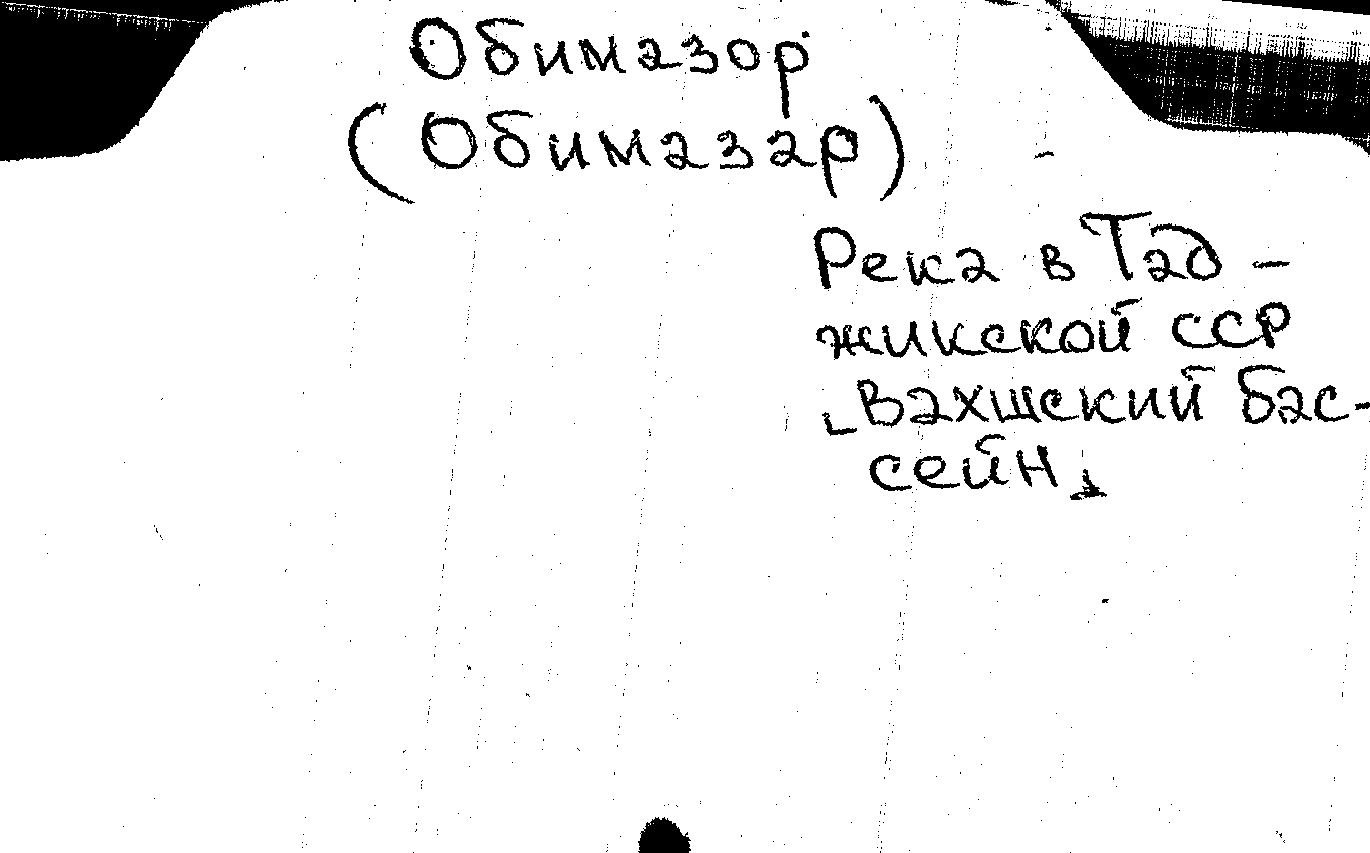 Обимазор
(Обимазар)
Река в Тад-
жикской ССР
[Вахшский бас-
сейн]